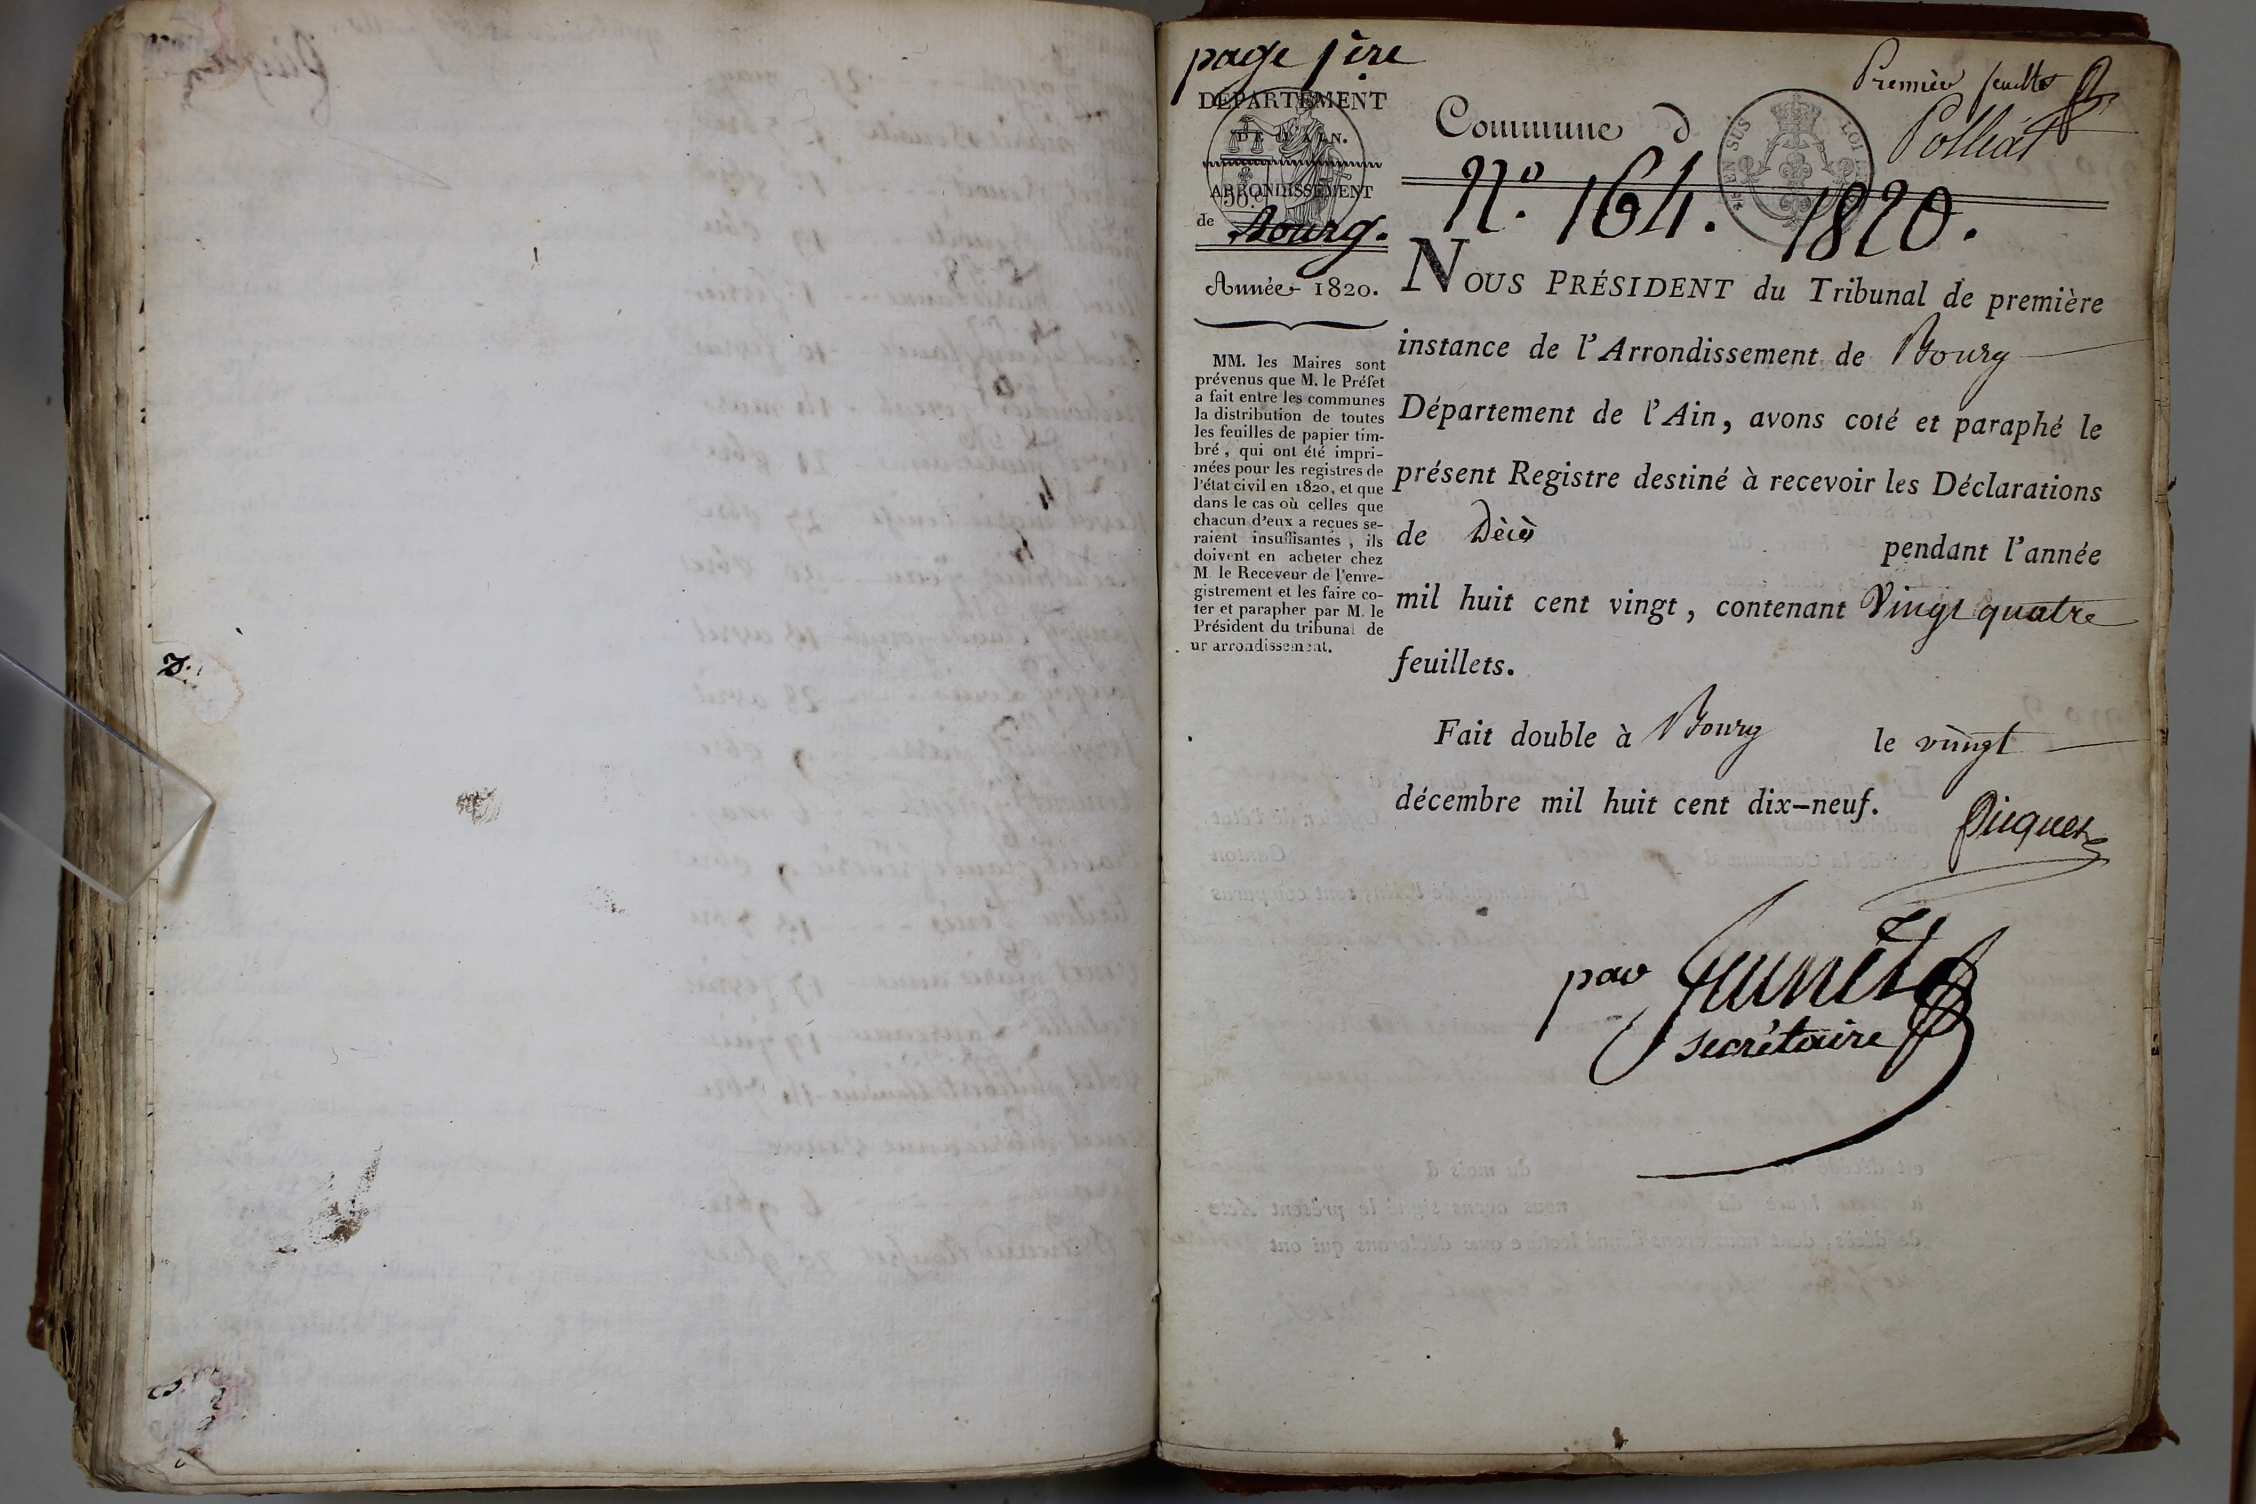 page 1ère
DÉPARTEMENT
DE L'AIN.
ARRONDISSEMENT
de Bourg.
Année 1820.
MM. les Maires sont
prévenus que M. le Préfet
a fait entre les communes
la distribution de toutes
les feuilles de papier tim-
bré, qui ont été impri-
mées pour les registres de
l'état civil en 1820, et que
dans le cas où celles que
chacun d'eux a reçues se-
raient insuffisantes, ils
doivent en acheter chez
M. le Receveur de l'enre-
gistrement et les faire co-
ter et parapher par M. le
Président du tribunal de
ur arrondissement.
Premier feuillet
Commune d Polliat
EN SUS LOI
N.° 164. 1820.
NOUS PRÉSIDENT du Tribunal de première
instance de l'Arrondissement de Bourg
Département de l'Ain, avons coté et paraphé le
présent Registre destiné à recevoir les Déclarations
de Décès pendant l'année
mil huit cent vingt, contenant Vingt quatre
feuillets.
Fait double à Bourg le vingt
décembre mil huit cent dix-neuf.
Picquet
par
secrétaire